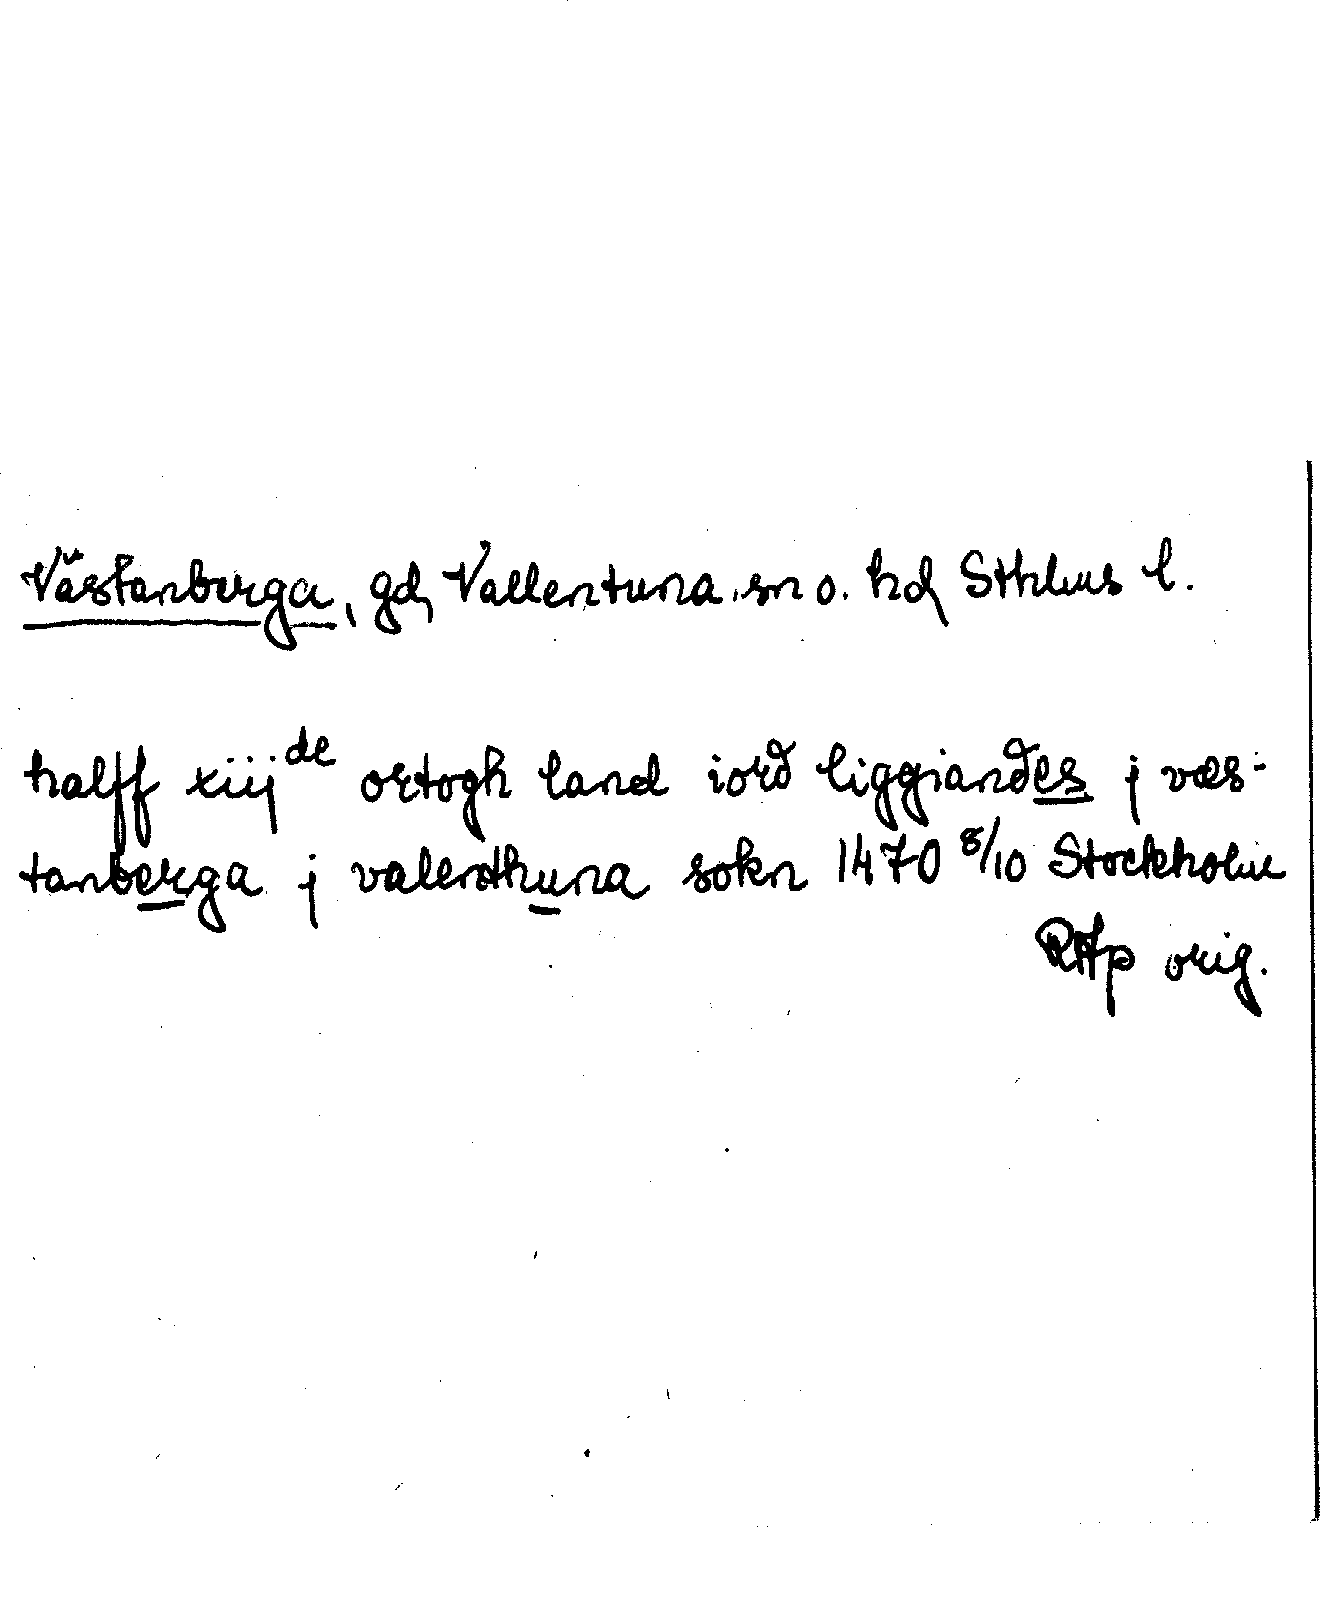 Västanberga, gd, Vallentuna sn o. hd, Sthlms l.
halff xiij de ortogh land iord liggiandes j væs-
tanberga j valendthuna sokn 1470 8/10 Stockholm
RAp orig.